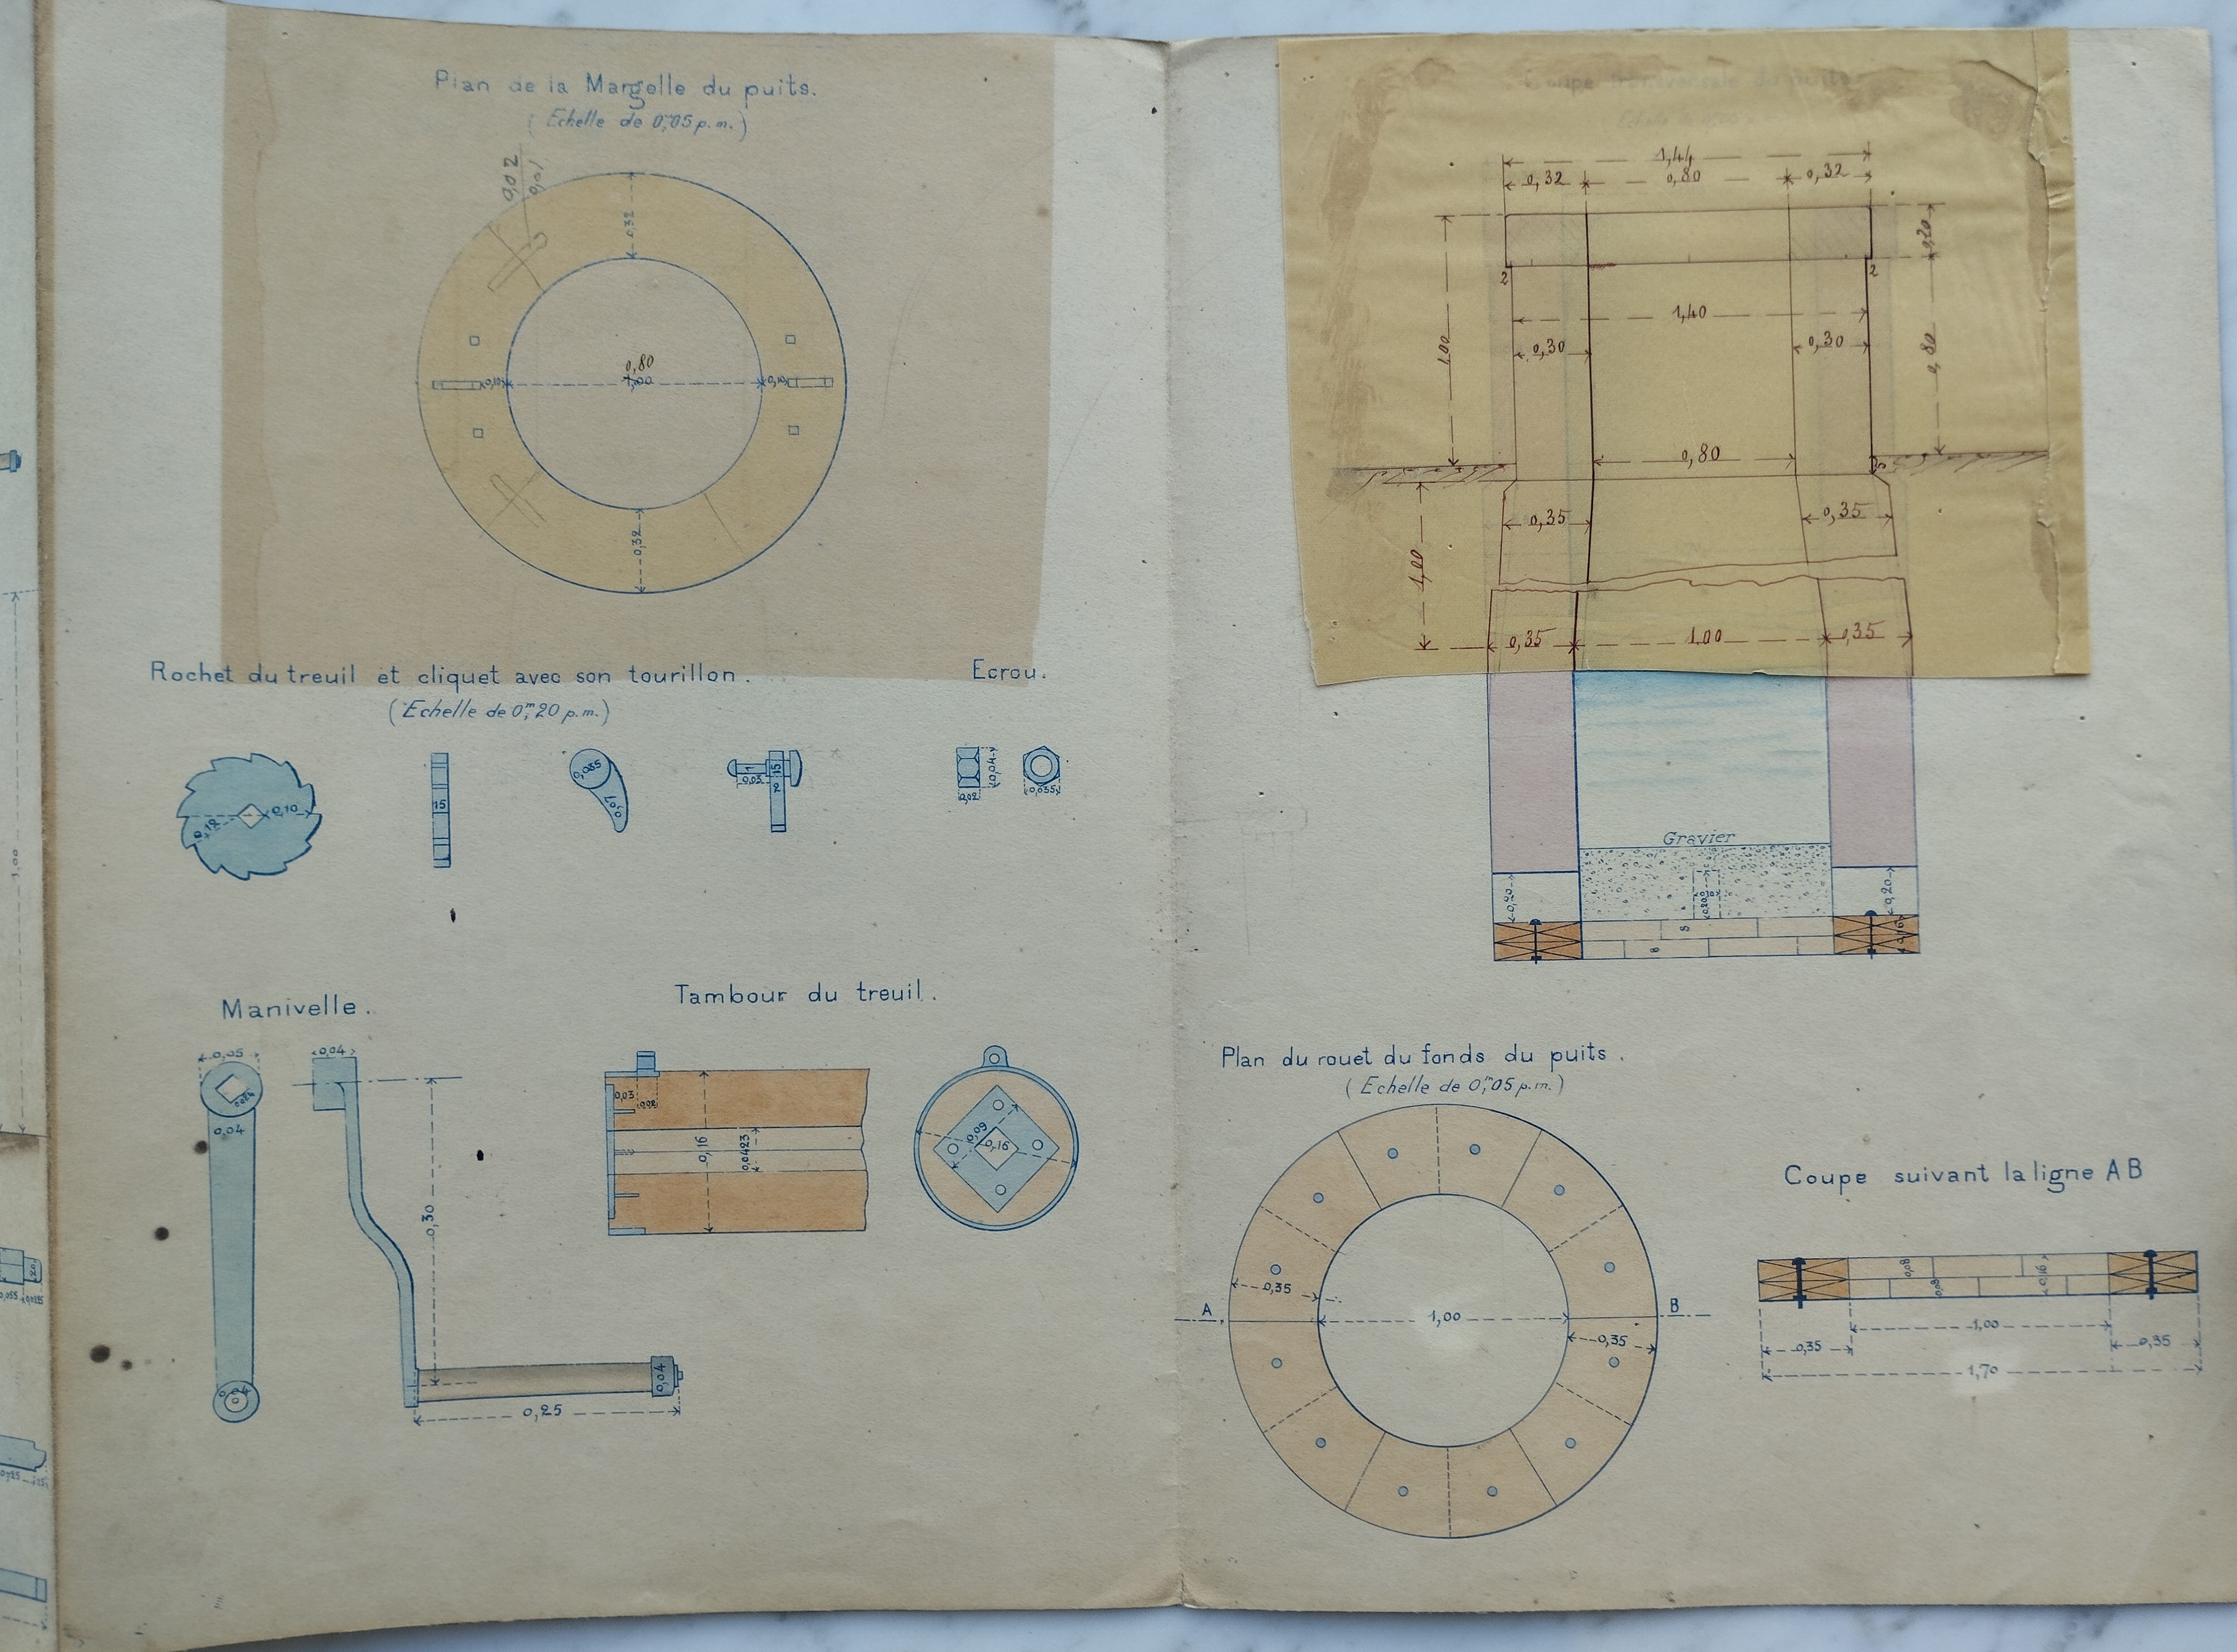 Plan de la Margelle du puits.
(Echelle de 0,m05 p.m.)
0,02
0,01
0,32
0,80
1,00
0,10
0,10
0,32
Rochet du treuil et cliquet avec son tourillon.
(Echelle de 0,m20 p.m.)
Ecrou.
0,12
0,10
15
0,035
0,03
1
15
0,02
0,04
0,035
Manivelle.
0,05
0,04
0,04
0,30
0,04
0,25
Tambour du treuil.
0,03
0,02
0,16
0,0423
0,09
0,16
1,00
0,055
Coupe transversale du puits
1,44
0,32
0,80
0,32
0,20
2
2
1,00
1,40
0,30
0,30
0,80
0,80
0,35
0,35
1,00
0,35
1,00
0,35
Gravier
0,20
0,20
0,20
8
8
0,16
Plan du rouet du fonds du puits.
(Echelle de 0,m05 p.m.)
0,35
A
1,00
B
0,35
Coupe suivant la ligne AB
0,08
0,08
0,16
1,00
0,35
0,35
1,70